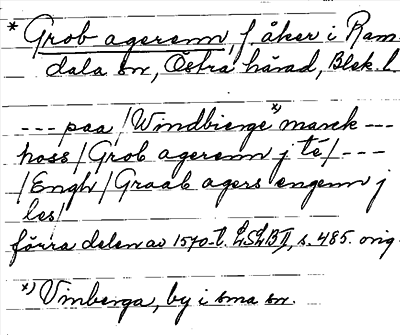 * Grob agerenn, f åker i Ram-
dala sn, Östra härad, Blek. l.
--- paa /Windbierge x) marck ---
hoss /Grob agerenn j té/ ---
/Engh/ Graab agers engenn j
les/
förra delen av 1570-t. LSLB II, s. 485. orig.
x) Vinberga, by i sma sn.